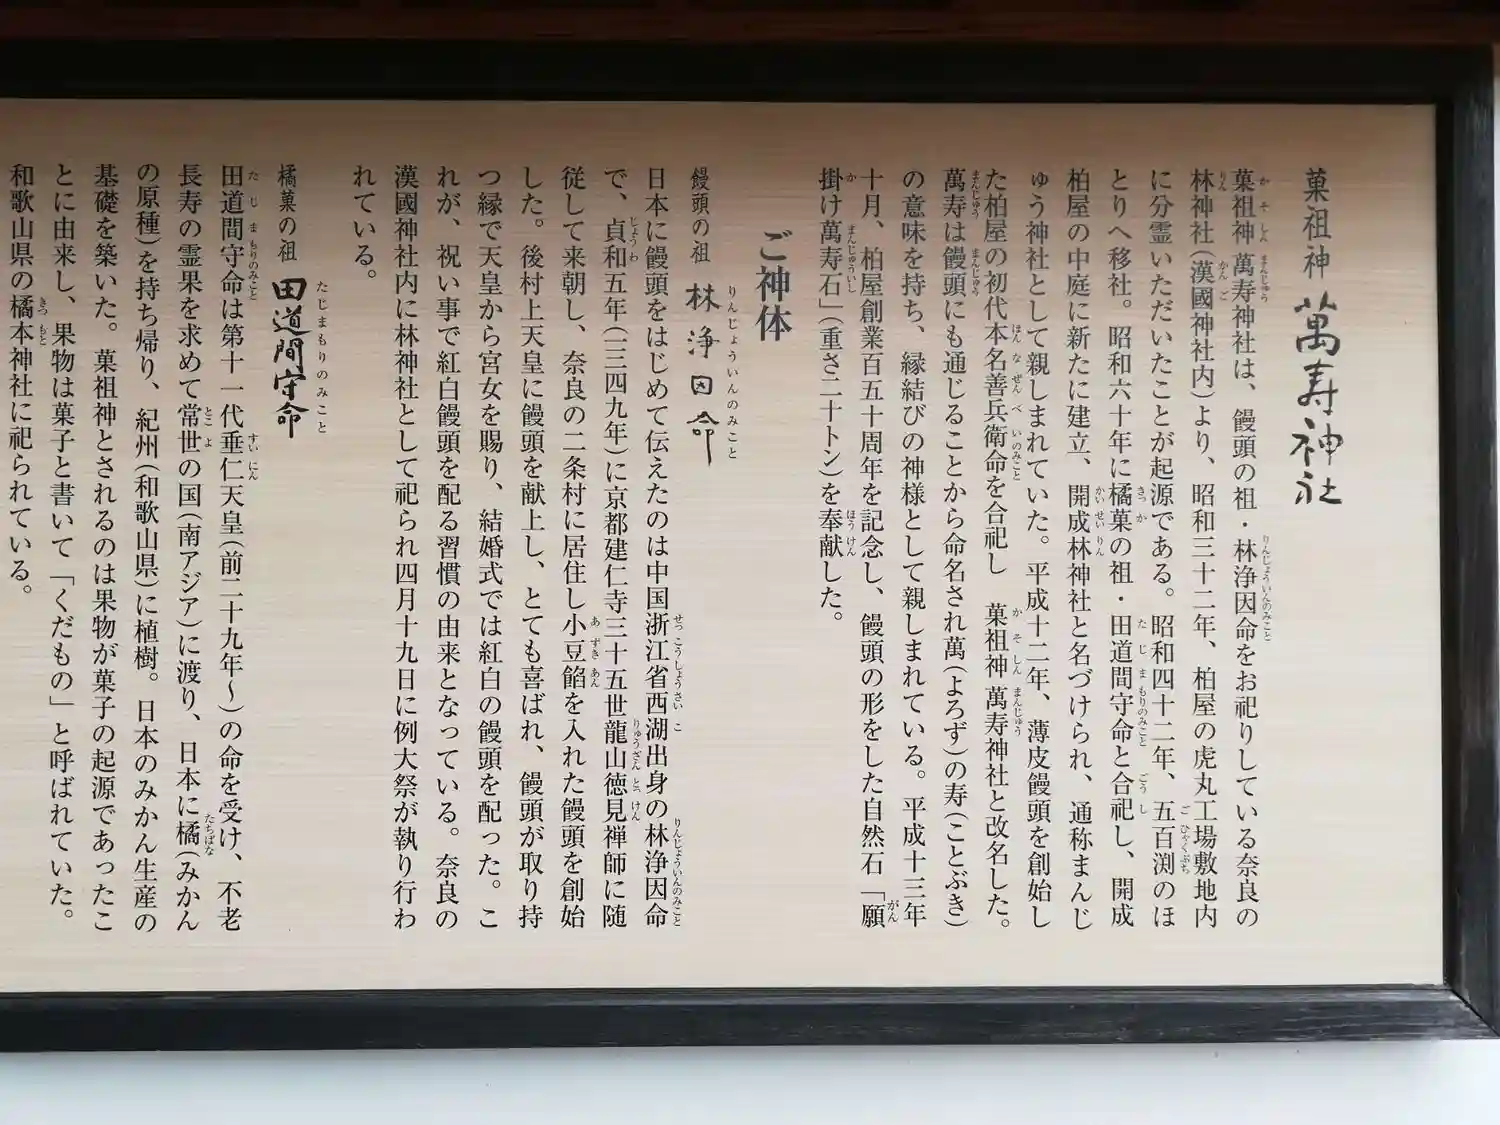 菓祖神 萬寿神社
菓祖神萬寿神社は、饅頭の祖・林浄因命をお祀りしている奈良の
林神社(漢國神社内)より、昭和三十二年、柏屋の虎丸工場敷地内
に分霊いただいたことが起源である。昭和四十二年、五百渕のほ
とりへ移社。昭和六十年に橘菓の祖・田道間守命と合祀し、開成
柏屋の中庭に新たに建立、開成林神社と名づけられ、通称まんじ
ゅう神社として親しまれていた。平成十二年、薄皮饅頭を創始し
た柏屋の初代本名善兵衛命を合祀し 菓祖神萬寿神社と改名した。
萬寿は饅頭にも通じることから命名され萬(よろず)の寿(ことぶき)
の意味を持ち、縁結びの神様として親しまれている。平成十三年
十月、柏屋創業百五十周年を記念し、饅頭の形をした自然石「願
掛け萬寿石」(重さ二十トン)を奉献した。
ご神体
饅頭の祖 林浄因命
日本に饅頭をはじめて伝えたのは中国浙江省西湖出身の林浄因命
で、貞和五年(一三四九年)に京都建仁寺三十五世龍山徳見禅師に随
従して来朝し、奈良の二条村に居住し小豆餡を入れた饅頭を創始
した。後村上天皇に饅頭を献上し、とても喜ばれ、饅頭が取り持
つ縁で天皇から宮女を賜り、結婚式では紅白の饅頭を配った。こ
れが、祝い事で紅白饅頭を配る習慣の由来となっている。奈良の
漢國神社内に林神社として祀られ四月十九日に例大祭が執り行わ
れている。
橘菓の祖 田道間守命
田道間守命は第十一代垂仁天皇(前二十九年〜)の命を受け、不老
長寿の霊果を求めて常世の国(南アジア)に渡り、日本に橘(みかん
の原種)を持ち帰り、紀州(和歌山県)に植樹。日本のみかん生産の
基礎を築いた。菓祖神とされるのは果物が菓子の起源であったこ
とに由来し、果物は菓子と書いて「くだもの」と呼ばれていた。
和歌山県の橘本神社に祀られている。